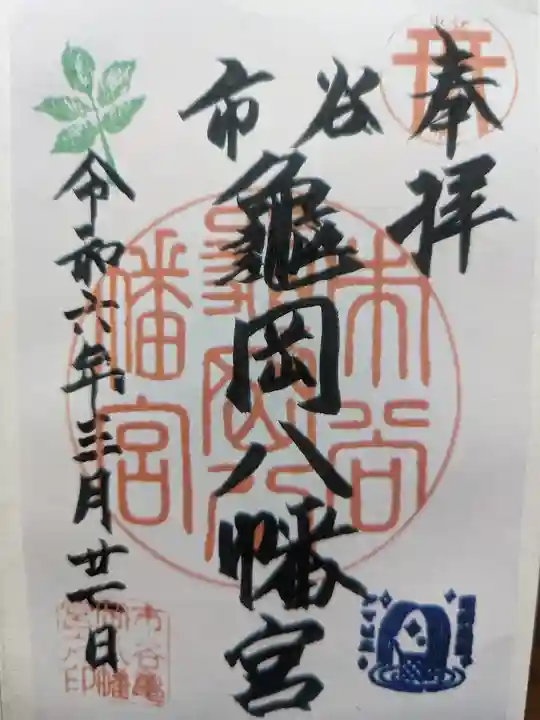 奉拝
市谷
龜岡八幡宮
令和六年三月廿一日
市谷
龜岡八
幡宮
市谷龜
岡八幡
宮之印